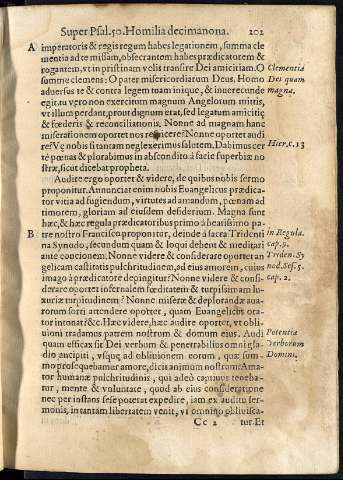 Super Psal.50.Homilia decimanona. 202
A imperatoris & regis regum habes legationem, summa cle
mentia ad te missam, obsecrantem habes prædicatorem &
rogantem, vt in pristinam velis transire Dei amicitiam. O
summe clemens: O pater misericordiarum Deus. Homo
aduersus te & contra legem tuam inique, & inuerecunde
egit. tu vero non exercitum magnum Angelorum mittis,
vt illum perdant, prout dignum erat, sed legatum amicitię
& fœderis & reconciliationis. Nonne ad magnam hanc
miserationem oportet nos respicere? Nonne oportet audi
re? Vę nobis si tantam neglexerimus salutem. Dabimus cer
tè pœnas & plorabimus in abscondito à facie superbiæ no
stræ, sicut dicebat propheta.
Clementia
Dei quam
magna.
Hier, c. 13
Audire ergo oportet & videre, de quibus nobis sermo
proponitur. Annunciat enim nobis Euangelicus prædica
tor vitia ad fugiendum, virtutes ad amandum, pœnam ad
timorem, gloriam ad eiusdem desiderium. Magna sunt
hæc, & hæc regula prædicatoribus primo à beatissimo pa-
B tre nostro Francisco proponitur, deinde à sacra Tridenti
na Synodo, secundum quam & loqui debent & meditari
ante concionem. Nonne videre & considerare oportet an
gelicam castitatis pulchritudinem, ad eius amorem, cuius
imago à prædicatore depingitur? Nonne videre & consi-
derare oportet infernalem fœditatem & turpissimam lu-
xuriæ turpitudinem? Nonne miseræ & deplorandæ auа-
rorum sorti attendere oportet, quam Euangelicus ora-
tor intonat? &c. Hæc videre, hæc audire oportet, vt obli-
uioni tradamus patrem nostrum & domum eius. Audi
quam efficax sit Dei verbum & penetrabilius omni gla-
dio ancipiti, vsque ad obliuionem eorum, quæ sum-
mo prosequebamur amore, dicis animum nostrum: Ama-
tor humanæ pulchritudinis, qui adeò captiuus teneba-
tur, mente & voluntate, quod ab eius consideratione
nec per instans sese poterat expedire, iam ex auditu ser-
monis, in tantam libertatem venit, vt omnino obliuisca-
in Regula.
cap. 9.
Triden. Sy
nod. Ses. 5.
cap. 2.
Potentia
verborum
Domini.
Cc 2 tur. Et